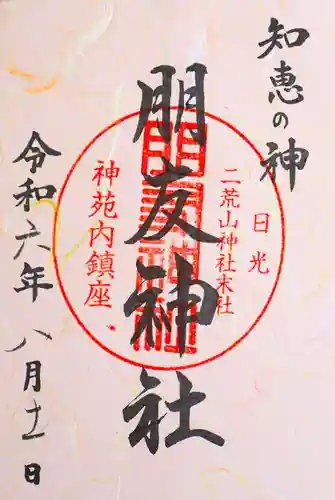 知恵の神
日光
二荒山神社末社
朋友神社
神苑内鎮座
令和六年 八月十一日